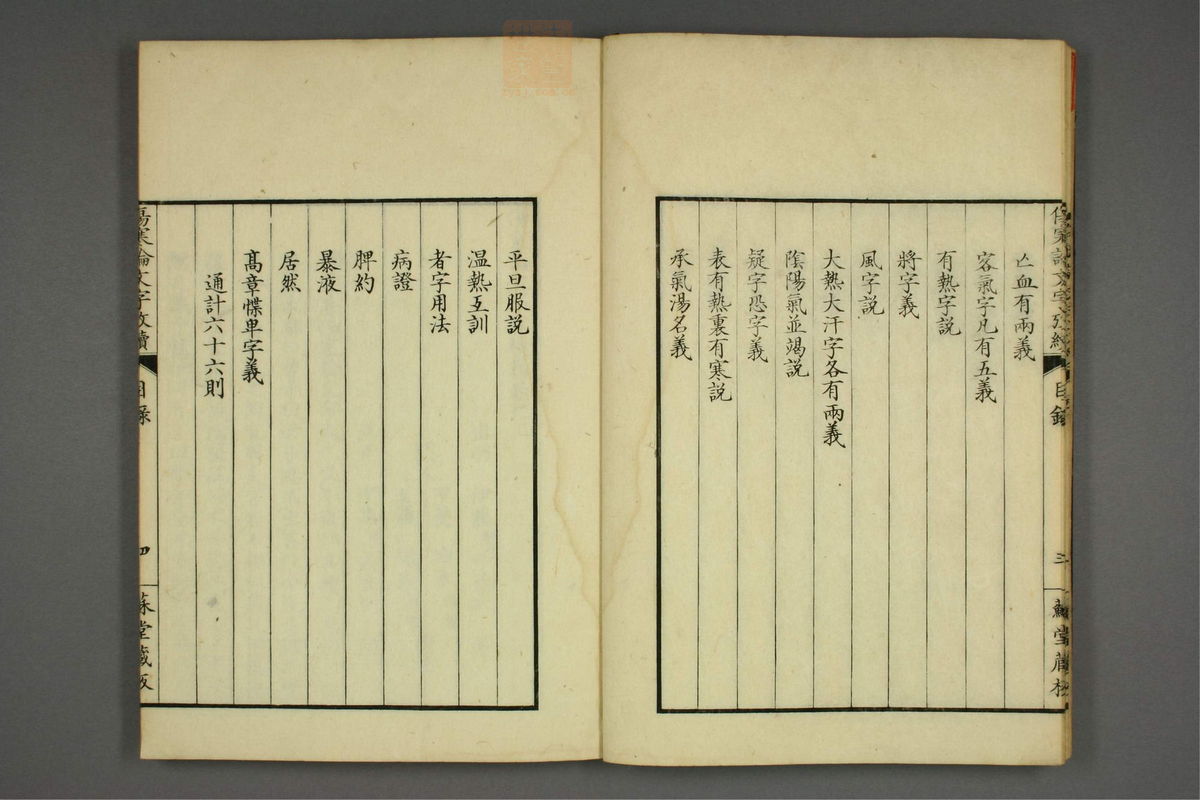 亡血有兩義
客氣字凡有五義
有熱字説
將字義
風字説
大熱大汗字各有兩義
陰陽氣並竭説
疑字恐字義
表有熱裏有寒説
承氣湯名義
平旦服説
温熱互訓
者字用法
病證
脾約
暴液
居然
髙章惵卑字義
通計六十六則
傷寒論文字攷續
目錄
三
蘇堂藏板
傷寒論文字攷續
目錄
四
蘇堂藏板